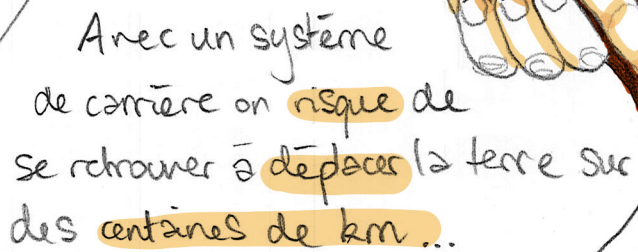 Avec un système
de carrière on risque de
se retrouver à déplacer la terre sur
des centaines de km...